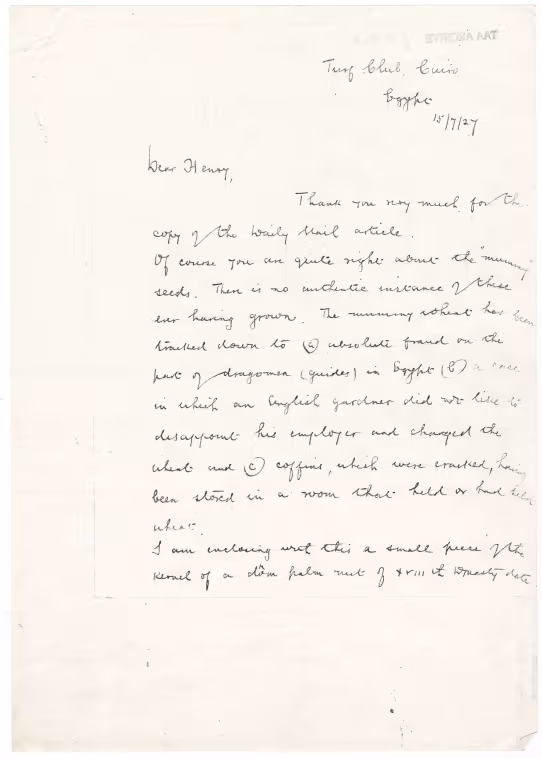 Turf Club, Cairo
Egypt
15/7/27
Dear Henry,
Thank you very much for the
copy of the Daily Mail article.
Of course you are quite right about the "mummy"
seeds. There is no authentic instance of these
ever having grown. The mummy wheat has been
tracked down to (a) absolute fraud on the
part of dragomen (guides) in Egypt (b) a case
in which an English gardner did not like to
disappoint his employer and changed the
wheat and (c) coffins, which were cracked, having
been stored in a room that held or had held
wheat.
I am enclosing with this a small piece of the
kernel of a dôm palm nut of XVIIIth Dynasty date